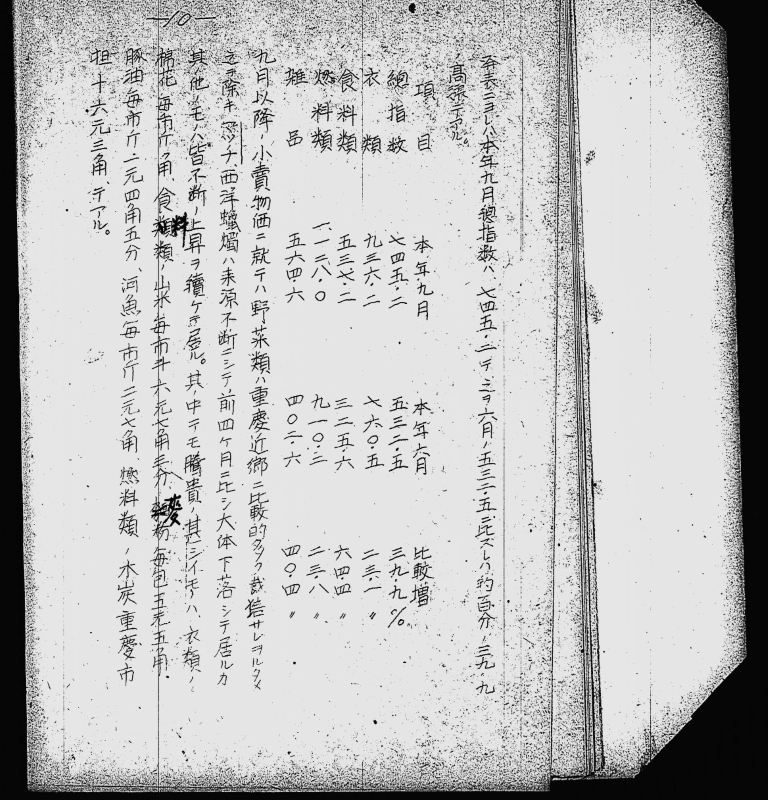 —10—
発表ニヨレバ本年九月總指数ハ、七四五・二デ之ヲ六月ノ五三二・五ニ比スレバ約百分ノ三九・九
ノ高漲デアル。
項目 本年九月 本年六月 比較増
總指数 七四五・二 五三二・五 三九・九%
衣類 九三六・二 七六〇・五 二三・一〃
食料類 五三七・二 三二五・六 六四・四〃
燃料類 一、一二八・〇 九一〇・三 二三・八〃
雑品 五六四・六 四〇二・六 四〇・四〃
九月以降ノ小賣物価ニ就テハ野菜類ハ重慶近郷ニ比較的多ク栽培サレヲルタメ
之ヲ除キマッチ、西洋蠟燭ハ来源不断ニシテ前四ヶ月ニ比シ大体下落シテ居ルガ
其他ノモノハ皆不断ノ上昇ヲ續ケテ居ル。其ノ中デモ騰貴ノ甚シイモノハ、衣類ノ
棉花毎市斤角、食料類ノ山米毎市斗六元七角三分、麥粉毎包五元五角
豚油毎市斤二元四角五分、河魚毎市斤二元七角、燃料類ノ木炭重慶市
担十六元三角デアル。